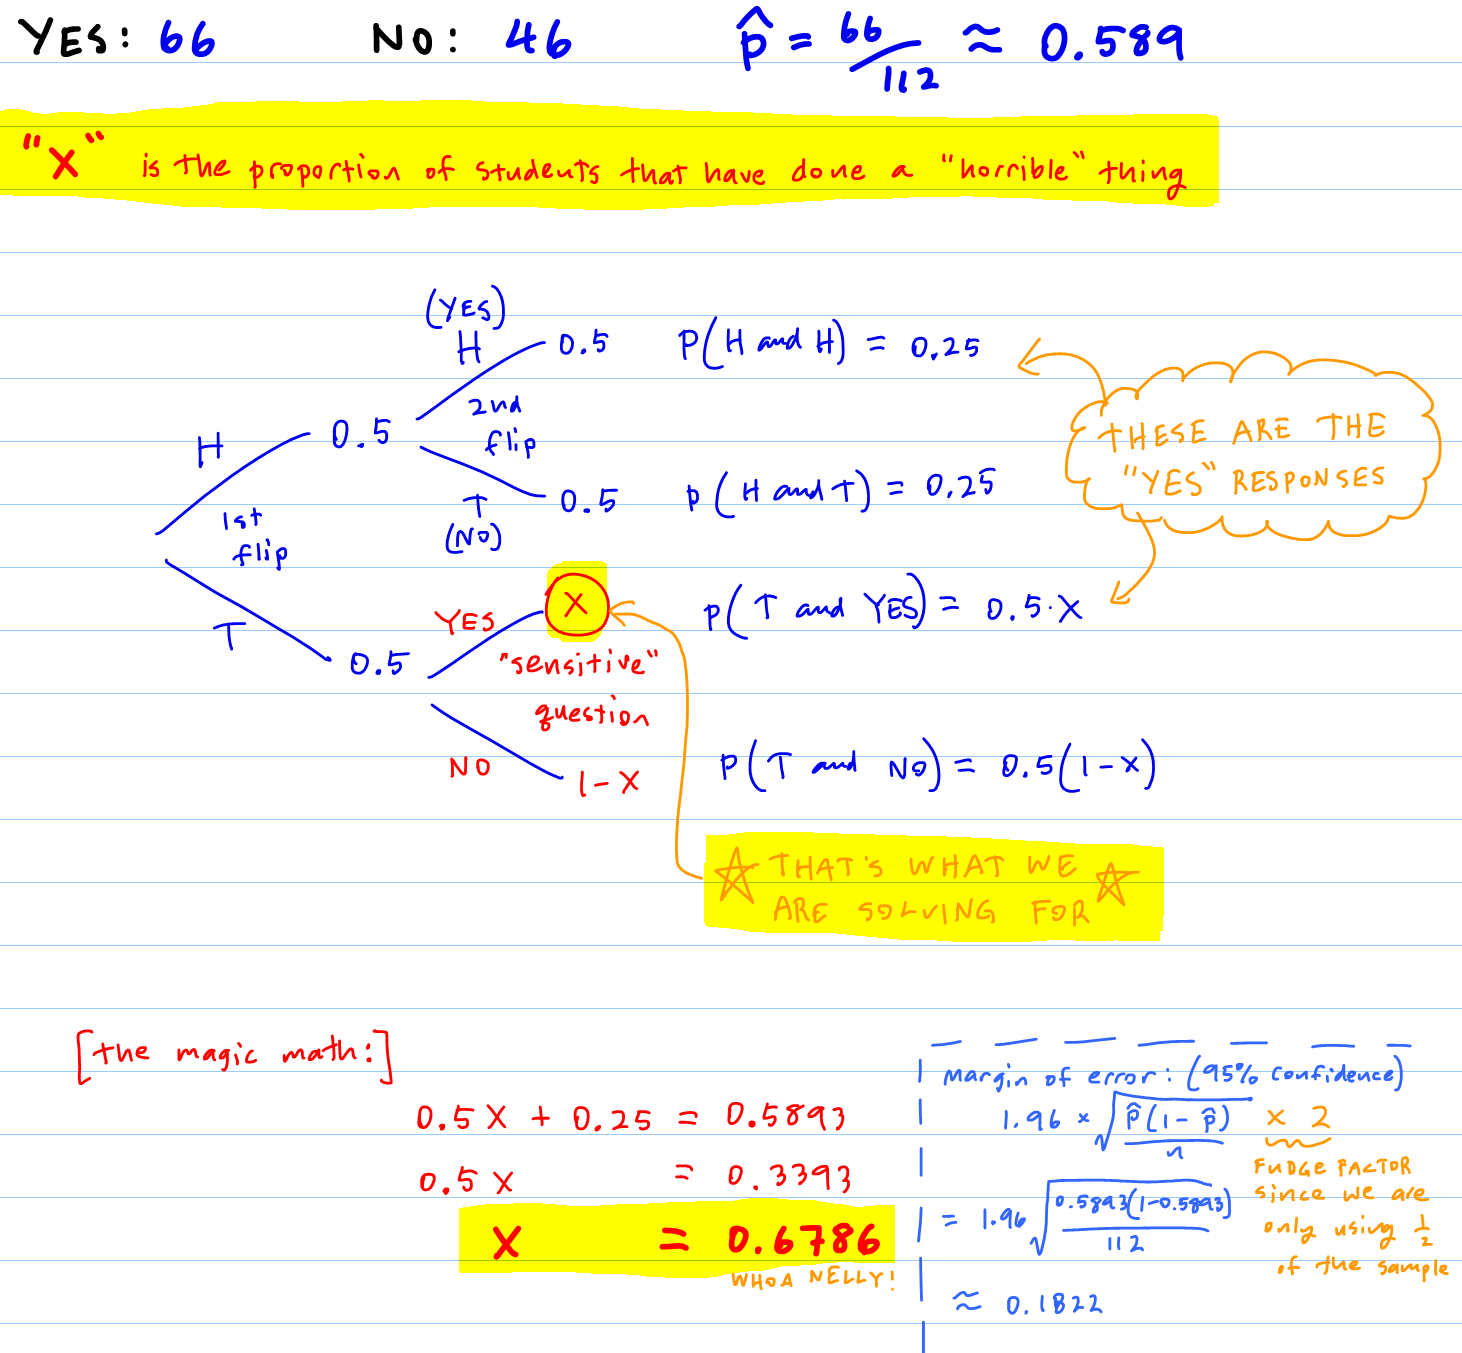 YES: 66 NO: 46 p̂ = 66/112 ≈ 0.589
"X" is the proportion of students that have done a "horrible" thing
(YES)
H 0.5 P(H and H) = 0.25
2nd
flip
THESE ARE THE
"YES" RESPONSES
H 0.5
T 0.5 P(H and T) = 0.25
(NO)
1st
flip
YES X P(T and YES) = 0.5·X
T 0.5
"sensitive"
question
NO 1-X P(T and NO) = 0.5(1-X)
☆ THAT'S WHAT WE ☆
ARE SOLVING FOR
[the magic math:]
0.5X + 0.25 = 0.5893
0.5X = 0.3393
X = 0.6786
WHOA NELLY!
Margin of error: (95% confidence)
1.96 × √(p̂(1-p̂)/n) × 2
FUDGE FACTOR
since we are
only using 1/2
of the sample
= 1.96 √(0.5893(1-0.5893)/112)
≈ 0.1822